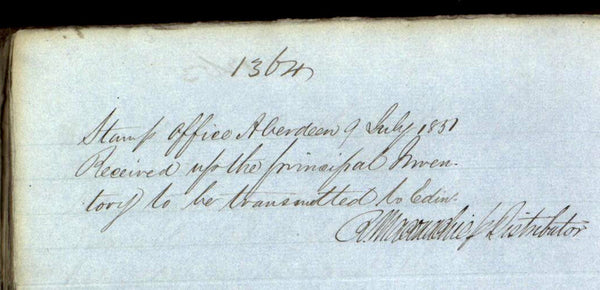 1364
Stamp Office Aberdeen 9 July 1851
Received up the principal Inven-
tory to be transmitted to Edinr.
Distributor